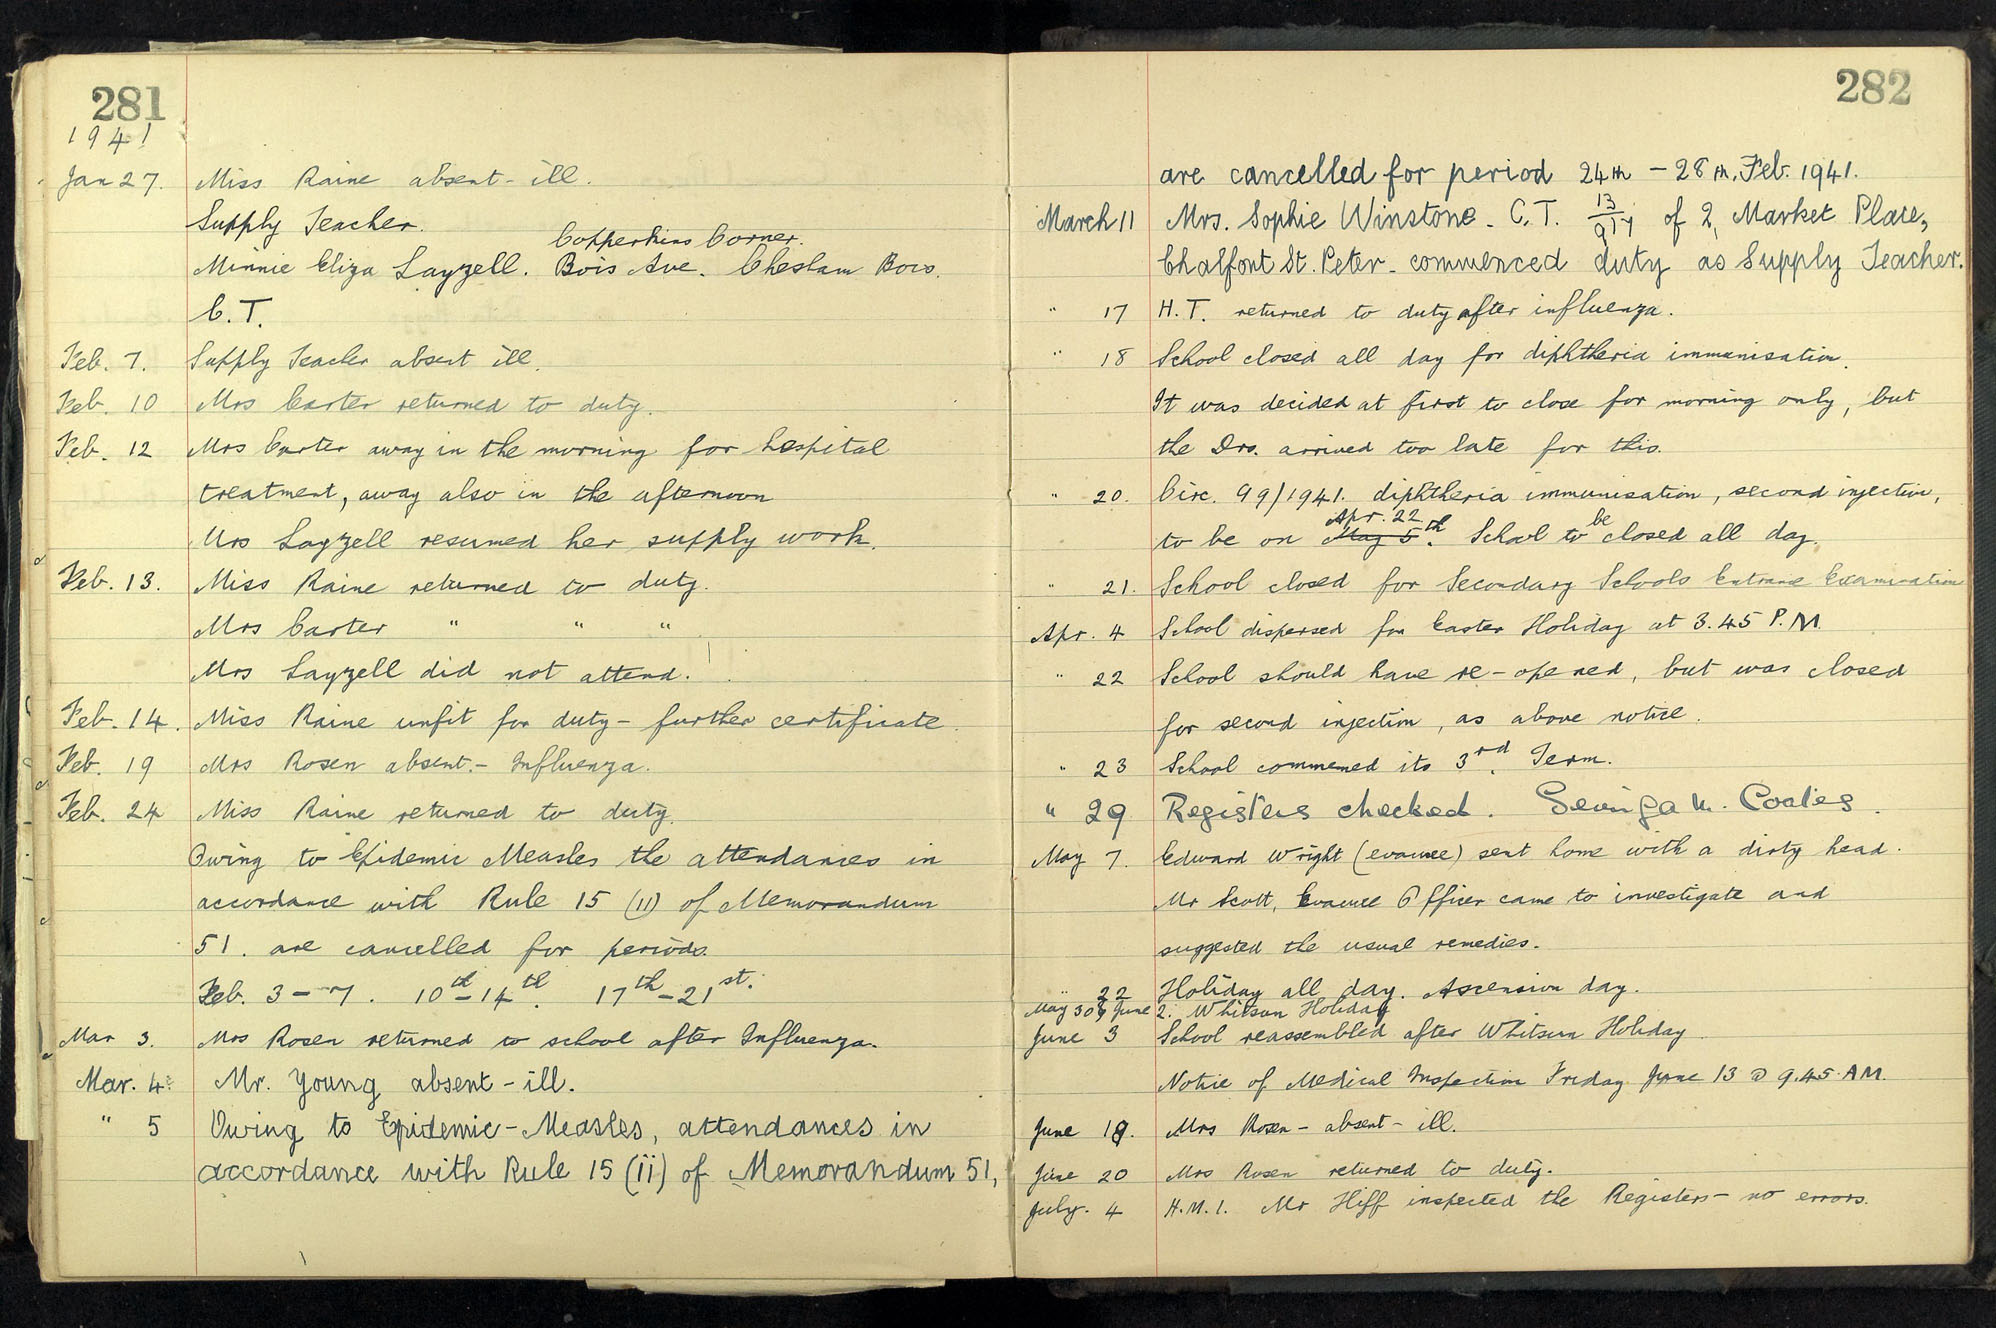 281
1941
Jan 27. Miss Raine absent - ill.
Supply Teacher.
Copperkins Corner.
Minnie Eliza Layzell. Bois Ave. Chesham Bois.
C.T.
Feb. 7. Supply Teacher absent ill.
Feb. 10 Mrs Carter returned to duty.
Feb. 12 Mrs Carter away in the morning for hospital
treatment, away also in the afternoon
Mrs Layzell resumed her supply work.
Feb. 13. Miss Raine returned to duty.
Mrs Carter " " "
Mrs Layzell did not attend.
Feb. 14. Miss Raine unfit for duty - further certificate.
Feb. 19 Mrs Rosen absent. - Influenza.
Feb. 24 Miss Raine returned to duty.
Owing to Epidemic Measles the attendances in
accordance with Rule 15 (11) of Memorandum
51. are cancelled for periods.
Feb. 3 - 7. 10th - 14th. 17th - 21st.
Mar 3. Mrs Rosen returned to school after Influenza.
Mar. 4. Mr. Young absent - ill.
" 5 Owing to Epidemic - Measles, attendances in
accordance with Rule 15 (ii) of Memorandum 51,
282
are cancelled for period 24th - 28th, Feb. 1941.
March 11 Mrs. Sophie Winstone - C.T. 13/917 of 2, Market Place,
Chalfont St. Peter - commenced duty as Supply Teacher.
" 17 H.T. returned to duty after influenza.
" 18 School closed all day for diphtheria immunisation.
It was decided at first to close for morning only, but
the Drs. arrived too late for this.
" 20. Circ. 99/1941. diphtheria immunisation, second injection,
Apr. 22 be
to be on May 5th. School to closed all day.
" 21. School closed for Secondary Schools Entrance Examination
Apr. 4 School dispersed for Easter Holiday at 3.45 P.M.
" 22 School should have re-opened, but was closed
for second injection, as above notice.
" 23 School commened its 3rd. Term.
" 29 Registers checked. M. Coates.
May 7. Edward Wright (evacuee) sent home with a dirty head.
Mr Scott, Evacuee Officer came to investigate and
suggested the usual remedies.
" 22 Holiday all day. Ascension day.
May 30 & June 2. Whitsun Holiday
June 3 School reassembled after Whitsun Holiday.
Notice of Medical Inspection Friday June 13 @ 9.45 A.M.
June 19. Mrs Rosen - absent - ill.
June 20 Mrs Rosen returned to duty.
July. 4 H.M.I. Mr Hiff inspected the Registers - no errors.